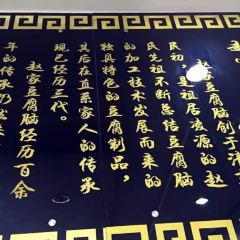 家豆腐脑创于清
民初,是祖居凌源的赵
民先祖不断总结豆腐脑
的加工技术发展而来的
独具特色的豆腐制品,
后在直系家人的传承
现已经历三代。
赵家豆腐脑经历百余
年的传承仍